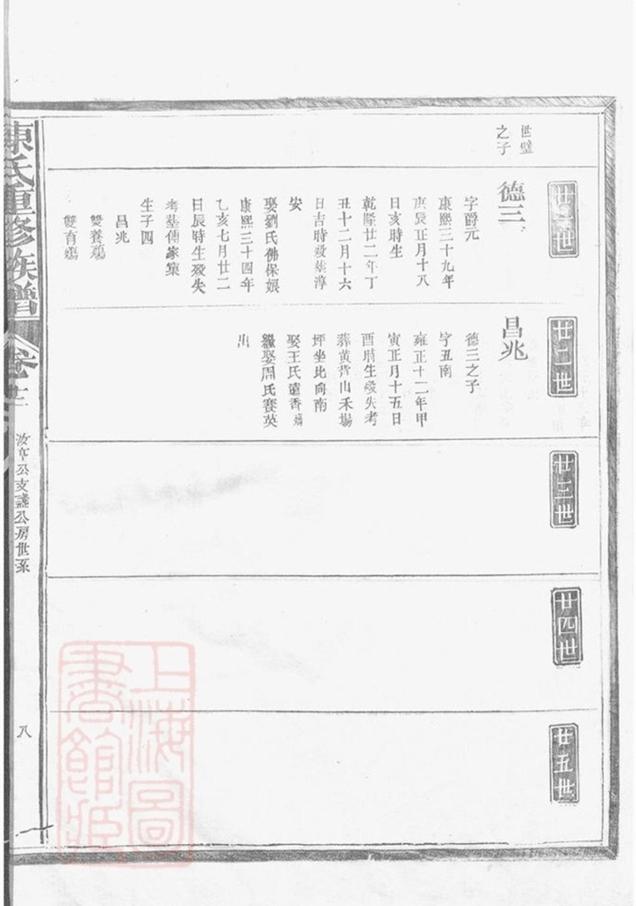 世璧
之子
廿一世
德三
字爵元
康熙三十九年
庚辰正月十八
日亥時生
乾隆廿二年丁
丑十二月十六
日吉時歿葬淳
安
娶劉氏佛保娘
康熙三十四年
乙亥七月廿二
日辰時生歿失
考墓傳家集
生子四
昌兆
雙養殤
雙育殤
廿二世
昌兆
德三之子
字丑南
雍正十二年甲
寅正月十五日
酉時生歿失考
葬黃荆山禾場
坪坐北向南
娶王氏遠香殤
繼娶周氏賽英
出
廿三世
廿四世
廿五世
陳氏重修族譜
卷十三
公支護公房世系
八
上海圖書館